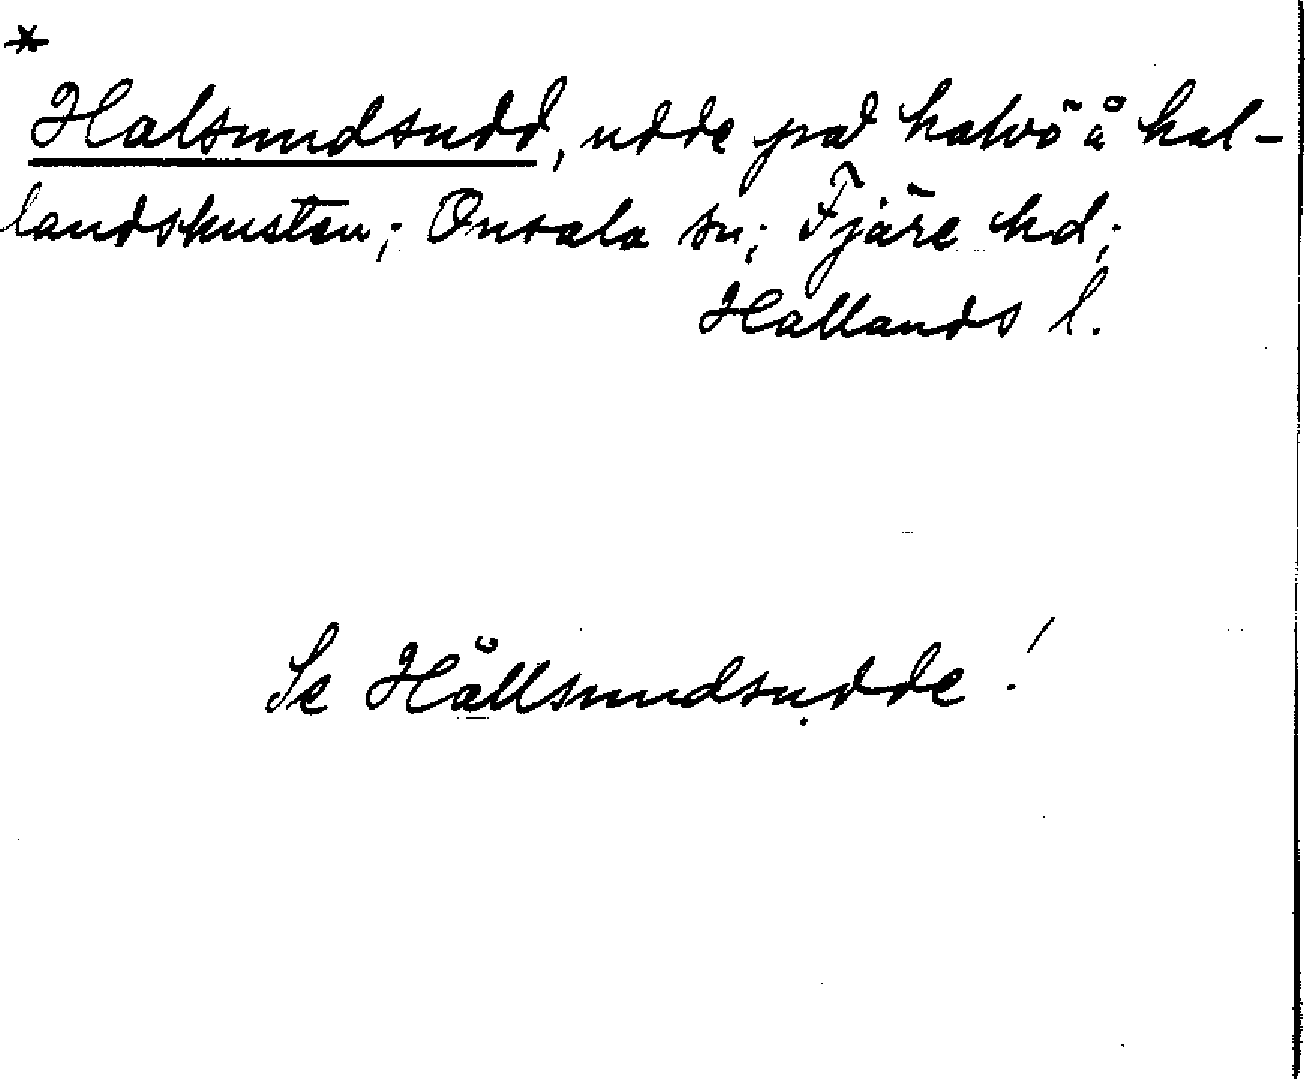 *
Halsundsudd, udde på halvö å hal-
landskusten; Onsala sn; Fjäre hd;
Hallands l.
Se Hållsundsudde!